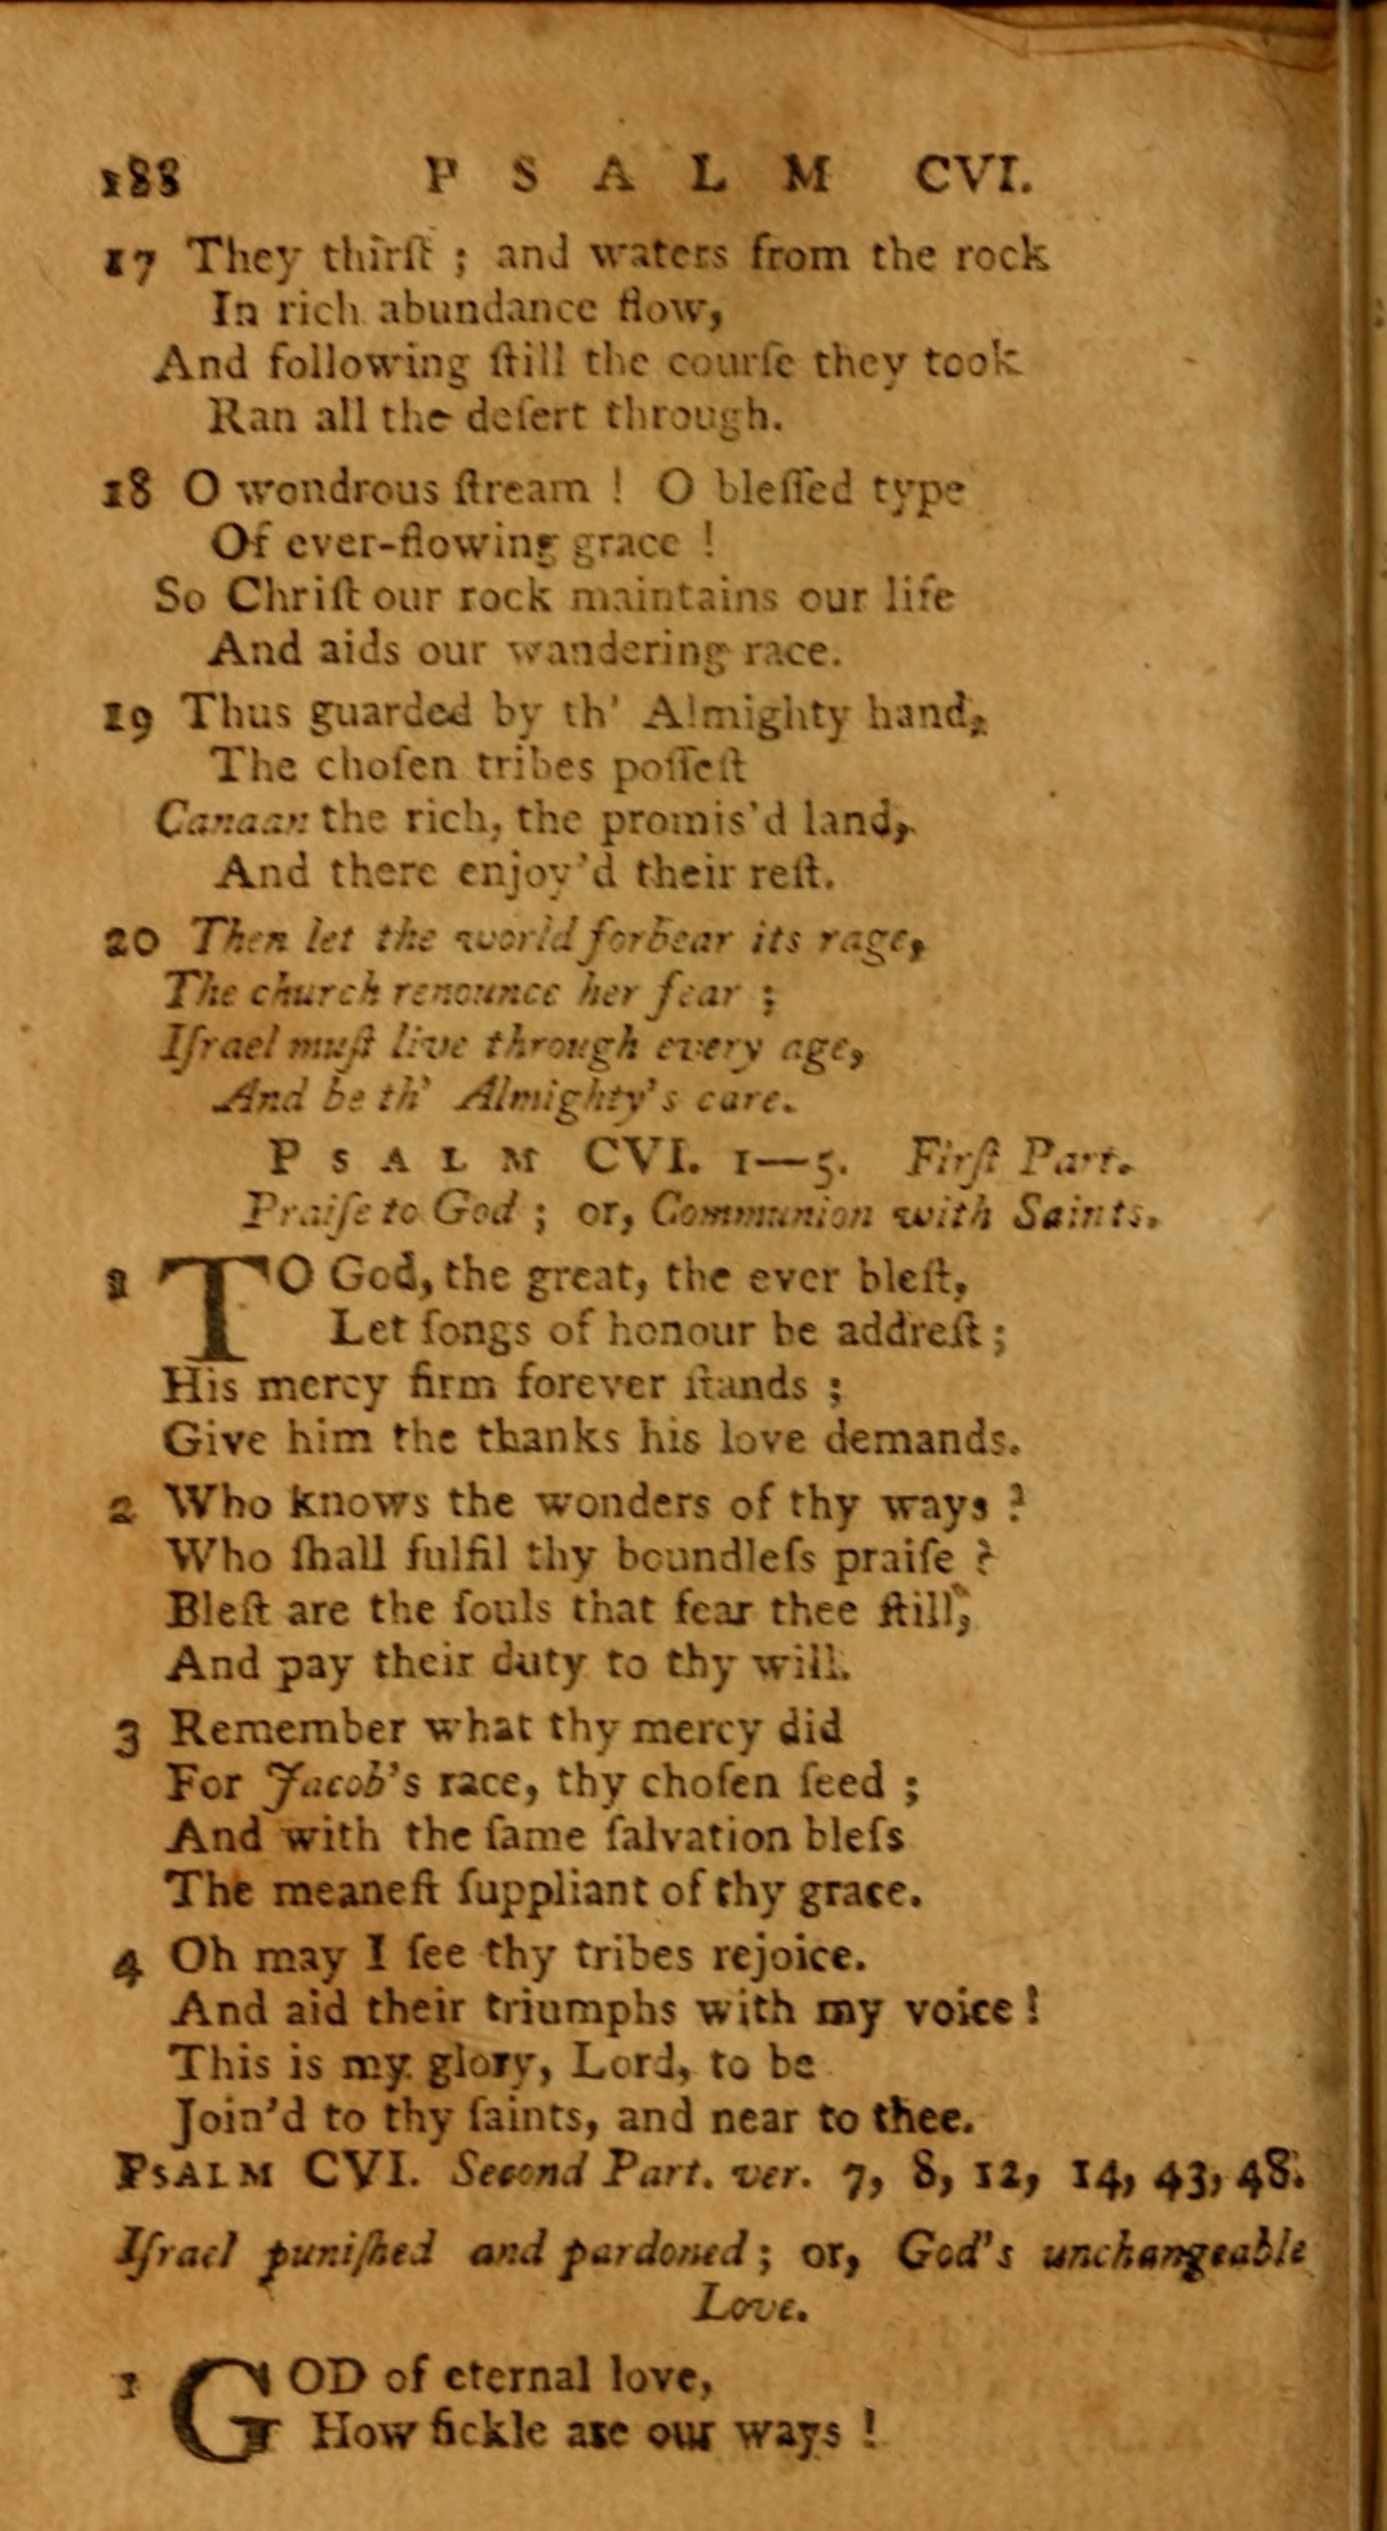 188 P S A L M CVI.
17 They thirſt ; and waters from the rock
In rich abundance flow,
And following ſtill the courſe they took
Ran all the deſert through.
18 O wondrous ſtream ! O bleſſed type
Of ever-flowing grace !
So Chriſt our rock maintains our life
And aids our wandering race.
19 Thus guarded by th' Almighty hand,
The choſen tribes poſſeſt
Canaan the rich, the promis'd land,
And there enjoy'd their reſt.
20 Then let the world forbear its rage,
The church renounce her fear ;
Iſrael muſt live through every age,
And be th' Almighty's care.
P S A L M CVI. 1—5. Firſt Part.
Praiſe to God ; or, Communion with Saints.
1 TO God, the great, the ever bleſt,
Let ſongs of honour be addreſt ;
His mercy firm forever ſtands ;
Give him the thanks his love demands.
2 Who knows the wonders of thy ways ?
Who ſhall fulfil thy boundleſs praiſe ?
Bleſt are the ſouls that fear thee ſtill,
And pay their duty to thy will.
3 Remember what thy mercy did
For Jacob's race, thy choſen ſeed ;
And with the ſame ſalvation bleſs
The meaneſt ſuppliant of thy grace.
4 Oh may I ſee thy tribes rejoice.
And aid their triumphs with my voice !
This is my glory, Lord, to be
Join'd to thy ſaints, and near to thee.
PSALM CVI. Second Part. ver. 7, 8, 12, 14, 43, 48.
Iſrael puniſhed and pardoned ; or, God's unchangeable
Love.
1 GOD of eternal love,
How fickle are our ways !